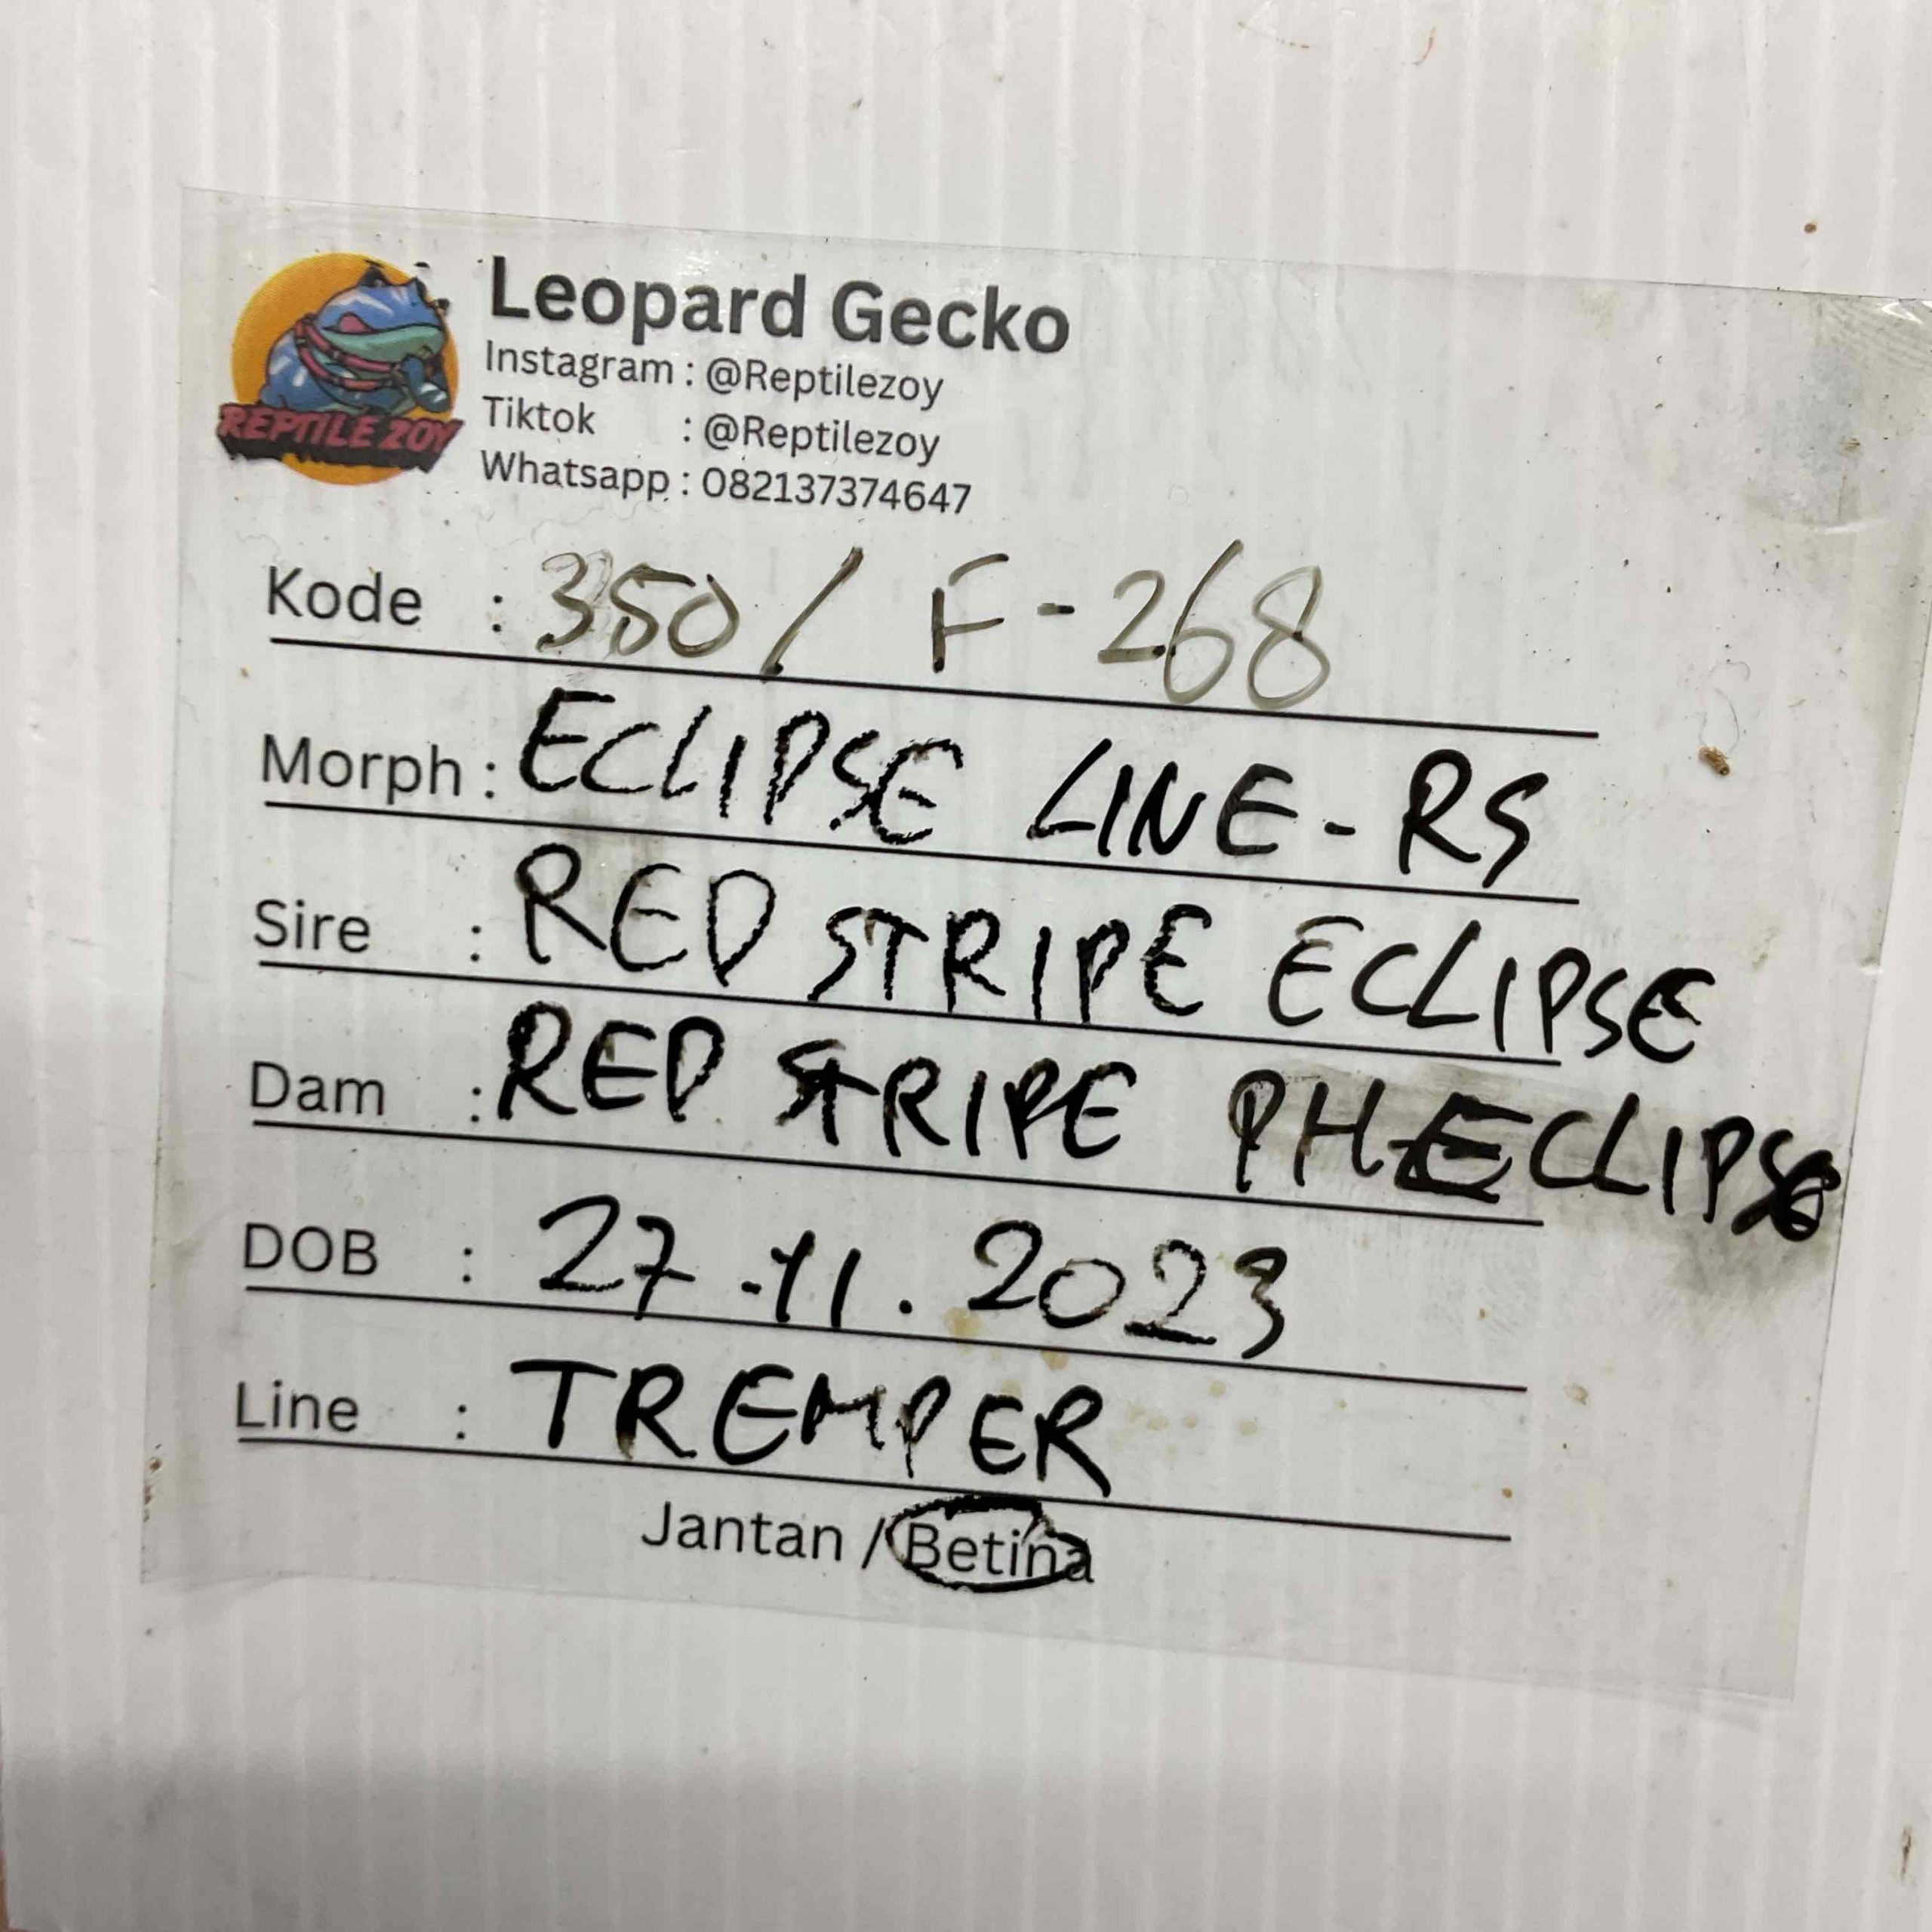 REPTILE ZOY
Leopard Gecko
Instagram : @Reptilezoy
Tiktok : @Reptilezoy
Whatsapp : 082137374647
Kode : 350 / F-268
Morph : ECLIPSE LINE-RS
Sire : RED STRIPE ECLIPSE
Dam : RED STRIPE PH-ECLIPSE
DOB : 27.11.2023
Line : TREMPER
Jantan / Betina